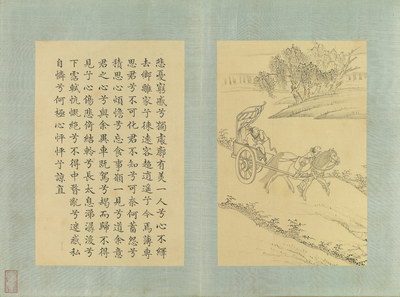 悲憂窮戚兮獨處廓有美一人兮心不繹
去鄉離家兮徠遠客超逍遙兮今焉薄專
思君兮不可化君不知兮可柰何蓄怨兮
積思心煩憺兮忘食事願一見兮道余意
君之心兮與余異車既駕兮朅而歸不得
見兮心傷悲倚結軨兮長太息涕潺湲兮
下霑軾忼慨絕兮不得中瞀亂兮迷惑私
自憐兮何極心怦怦兮諒直